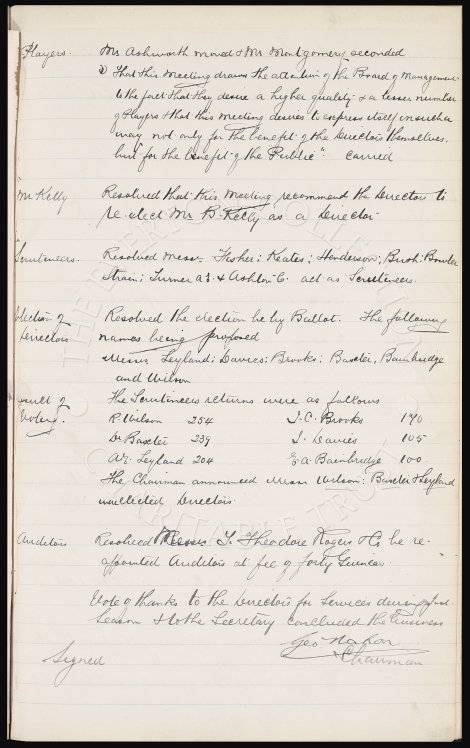 Players. Mr Ashworth moved & Mr Montgomery seconded
"That this Meeting draws the attention of the Board of Management
to the fact that they desire a higher quality & a lesser number
of Players & that this meeting desires to express itself in such a
way not only for the benefit of the Directors themselves
but for the benefit of the Public". Carried
Mr Kelly Resolved that this meeting recommend the Directors to
re-elect Mr B. Kelly as a Director
Scrutineers. Resolved Messrs. Fisher; Keates; Henderson; Bowler
Strain; Turner & Ashton C. act as Scrutineers.
Election of Resolved the election be by Ballot. The following
Directors names being proposed
Messrs Leyland; Davies; Brooks; Baxter, Bainbridge
and Wilson
result of The Scrutineers returns were as follows
Voting. R Wilson 254 J.C. Brooks 190
Dr Baxter 239 J. Davies 105
Leyland 204 Bainbridge 100
The Chairman announced Messrs Wilson; Baxter & Leyland
Directors.
Auditors Resolved Messrs T. Theodore Rogers & Co be re-
appointed Auditors at fee of forty Guineas.
Vote of thanks to the Directors for services during past
Season & to the Secretary concluded the business
Geo Mahon
Signed Chairman